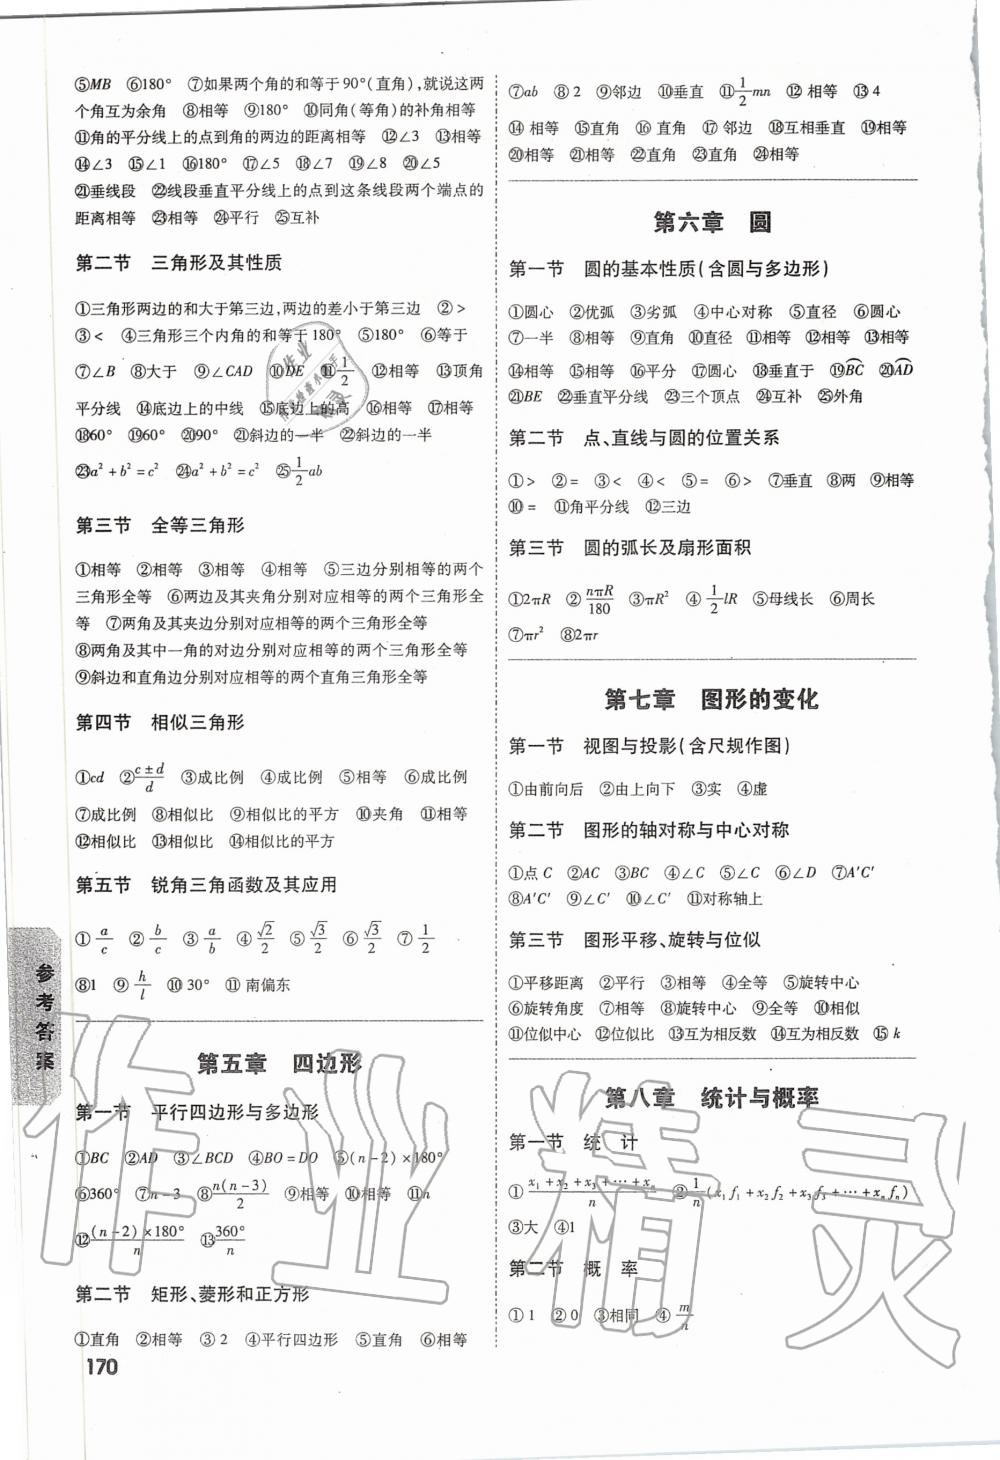 ⑤MB ⑥180° ⑦如果两个角的和等于90°(直角),就说这两
个角互为余角 ⑧相等 ⑨180° ⑩同角(等角)的补角相等
⑪角的平分线上的点到角的两边的距离相等 ⑫∠3 ⑬相等
⑭∠3 ⑮∠1 ⑯180° ⑰∠5 ⑱∠7 ⑲∠8 ⑳∠5
㉑垂线段 ㉒线段垂直平分线上的点到这条线段两个端点的
距离相等 ㉓相等 ㉔平行 ㉕互补
第二节 三角形及其性质
①三角形两边的和大于第三边,两边的差小于第三边 ②>
③< ④三角形三个内角的和等于180° ⑤180° ⑥等于
⑦∠B ⑧大于 ⑨∠CAD ⑩DE ⑪1/2 ⑫相等 ⑬顶角
平分线 ⑭底边上的中线 ⑮底边上的高 ⑯相等 ⑰相等
⑱60° ⑲60° ⑳90° ㉑斜边的一半 ㉒斜边的一半
㉓a²+b²=c² ㉔a²+b²=c² ㉕1/2ab
第三节 全等三角形
①相等 ②相等 ③相等 ④相等 ⑤三边分别相等的两个
三角形全等 ⑥两边及其夹角分别对应相等的两个三角形全
等 ⑦两角及其夹边分别对应相等的两个三角形全等
⑧两角及其中一角的对边分别对应相等的两个三角形全等
⑨斜边和直角边分别对应相等的两个直角三角形全等
第四节 相似三角形
①cd ②(c±d)/d ③成比例 ④成比例 ⑤相等 ⑥成比例
⑦成比例 ⑧相似比 ⑨相似比的平方 ⑩夹角 ⑪相等
⑫相似比 ⑬相似比 ⑭相似比的平方
第五节 锐角三角函数及其应用
①a/c ②b/c ③a/b ④√2/2 ⑤√3/2 ⑥√3/2 ⑦1/2
⑧1 ⑨h/l ⑩30° ⑪南偏东
第五章 四边形
第一节 平行四边形与多边形
①BC ②AD ③∠BCD ④BO=DO ⑤(n-2)×180°
⑥360° ⑦n-3 ⑧n(n-3)/2 ⑨相等 ⑩相等 ⑪n
⑫(n-2)×180°/n ⑬360°/n
第二节 矩形、菱形和正方形
①直角 ②相等 ③2 ④平行四边形 ⑤直角 ⑥相等
170
参考答案
⑦ab ⑧2 ⑨邻边 ⑩垂直 ⑪1/2mn ⑫相等 ⑬4
⑭相等 ⑮直角 ⑯直角 ⑰邻边 ⑱互相垂直 ⑲相等
⑳相等 ㉑相等 ㉒直角 ㉓直角 ㉔相等
第六章 圆
第一节 圆的基本性质(含圆与多边形)
①圆心 ②优弧 ③劣弧 ④中心对称 ⑤直径 ⑥圆心
⑦一半 ⑧相等 ⑨直角 ⑩直径 ⑪相等 ⑫相等 ⑬相等
⑭相等 ⑮相等 ⑯平分 ⑰圆心 ⑱垂直于 ⑲B͡C ⑳A͡D
㉑BE ㉒垂直平分线 ㉓三个顶点 ㉔互补 ㉕外角
第二节 点、直线与圆的位置关系
①> ②= ③< ④< ⑤= ⑥> ⑦垂直 ⑧两 ⑨相等
⑩= ⑪角平分线 ⑫三边
第三节 圆的弧长及扇形面积
①2πR ②nπR/180 ③πR² ④1/2lR ⑤母线长 ⑥周长
⑦πr² ⑧2πr
第七章 图形的变化
第一节 视图与投影(含尺规作图)
①由前向后 ②由上向下 ③实 ④虚
第二节 图形的轴对称与中心对称
①点C ②AC ③BC ④∠C ⑤∠C ⑥∠D ⑦A′C′
⑧A′C′ ⑨∠C′ ⑩∠C′ ⑪对称轴上
第三节 图形平移、旋转与位似
①平移距离 ②平行 ③相等 ④全等 ⑤旋转中心
⑥旋转角度 ⑦相等 ⑧旋转中心 ⑨全等 ⑩相似
⑪位似中心 ⑫位似比 ⑬互为相反数 ⑭互为相反数 ⑮k
第八章 统计与概率
第一节 统 计
①(x₁+x₂+x₃+…+xₙ)/n ②1/n(x₁f₁+x₂f₂+x₃f₃+…+xₙfₙ)
③大 ④1
第二节 概 率
①1 ②0 ③相同 ④m/n
作业精灵